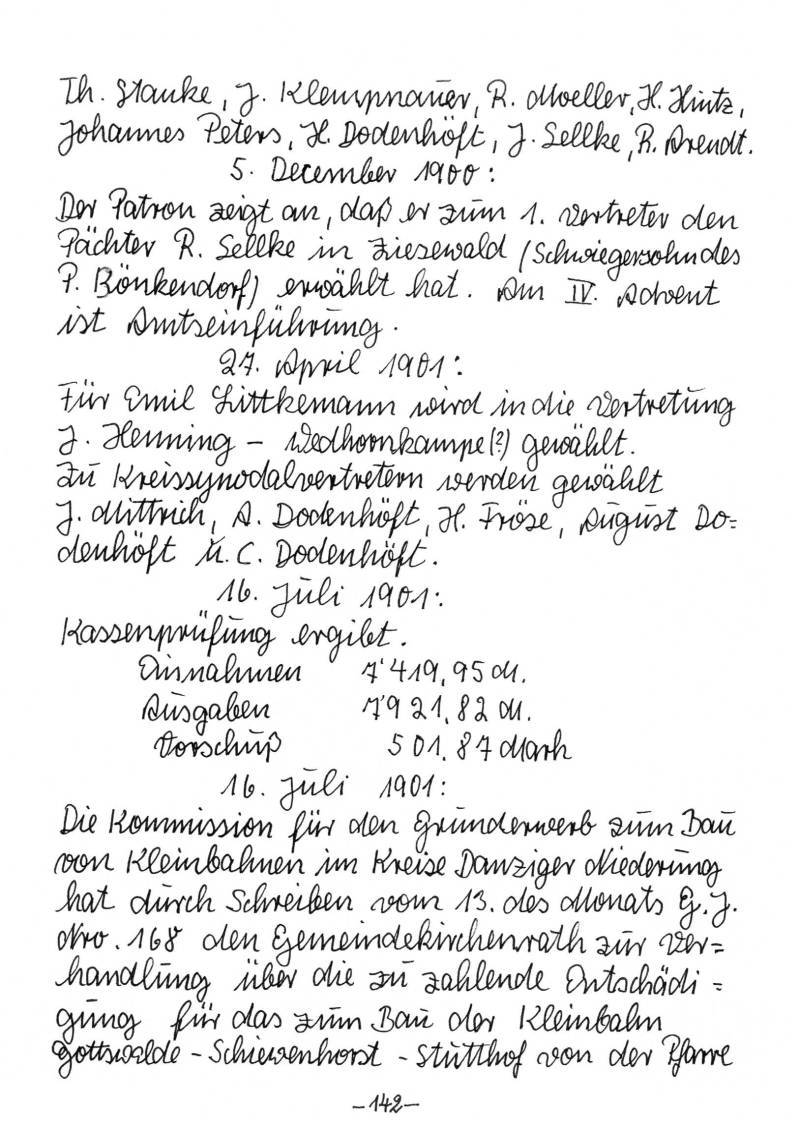 Th. Stanke, J. Klempnauer, R. Moeller, H. Hintz,
Johannes Peters, H. Dodenhöft, J. Sellke, R. Arendt.
5. December 1900:
Der Patron zeigt an, daß er zum 1. Vertreter den
Pächter R. Sellke in Ziesewald (Schwiegersohn des
P. Bönkendorf) erwählt hat. Am IV. Advent
ist Amtseinführung.
27. April 1901:
Für Emil Littkemann wird in die Vertretung
J. Henning - Wedhornkampe(?) gewählt.
Zu Kreissynodalvertretern werden gewählt
J. Mittrich, A. Dodenhöft, H. Fröse, August Do=
denhöft u. C. Dodenhöft.
16. Juli 1901:
Kassenprüfung ergibt.
Einnahmen 7'419,95 M.
Ausgaben 7'921,82 M.
Vorschuß 501,87 Mark
16. Juli 1901:
Die Kommission für den Grunderwerb zum Bau
von Kleinbahnen im Kreise Danziger Niederung
hat durch Schreiben vom 13. des Monats G. J.
Nro. 168 den Gemeindekirchenrath zur Ver=
handlung über die zu zahlende Entschädi=
gung für das zum Bau der Kleinbahn
Gottswalde - Schiewenhorst - Stutthof von der Pfarre
-142-